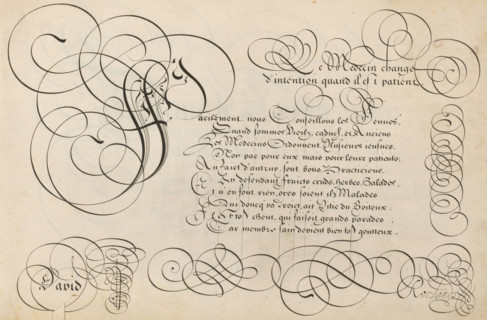 Le Medecin change
d'intention quand il est patient
Facilement nous Conseillons les Jeunes
Quand sommes Vieilz caducs et Anciens
Les Medecins Ordonnent Plusieurs ieusnes
Non pas pour eux mais pour leurs patients,
Au faict d'autruy sont bons Practiciens.
En defendant fruicts cruds, herbes, Salades,
n'en font rien, ores soient ilz Malades
Qui doncq va droict, ait Pitie du Boiteux.
Tel chent, qui faisoit grands parades
Car membre sain devient bien tost goutteux.
David